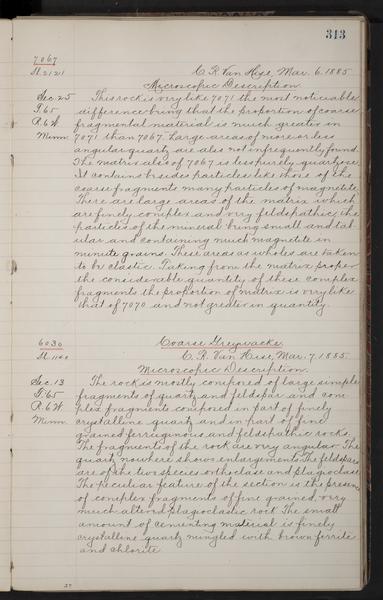 313
7067
Sl. 2121
C. R. Van Hise, Mar. 6. 1885
Microscopic Description.
Sec. 25
T. 65
R. 6 W
Minn.
This rock is very like 7071 the most noticeable
difference being that the proportion of coarse
fragmental material is much greater in
7071 than 7067. Large areas of more or less
angular quartz are also not infrequently found.
The matrix also of 7067 is less purely quartzose
It contains besides particles like those of the
coarse fragments many particles of magnetite.
There are large areas of the matrix which
are finely complex and very feldspathic, the
particles of the mineral being small and tab
ular and containing much magnetite in
minute grains. These areas as wholes are taken
to be clastic. Taking from the matrix proper
the considerable quantity of these complex
fragments the proportion of matrix is very like
that of 7070 and not greater in quantity.
6030
Sl. 1160
Coarse Greywacke.
C. R. Van Hise, Mar. 7. 1885.
Microscopic Description.
Sec. 13
T. 65
R. 6 W.
Minn.
The rock is mostly composed of large simple
fragments of quartz and feldspar and com-
plex fragments composed in part of finely
crystalline quartz and in part of fine
grained ferruginous and feldspathic rocks.
The fragments of the rock are very angular. The
quartz nowhere shows enlargements. The feldspars
are of the two species orthoclase and plagioclase.
The peculiar feature of the section is the presence
of complex fragments of fine grained, very
much altered plagioclastic rock. The small
amount of cementing material is finely
crystalline quartz mingled with brown ferrite
and chlorite